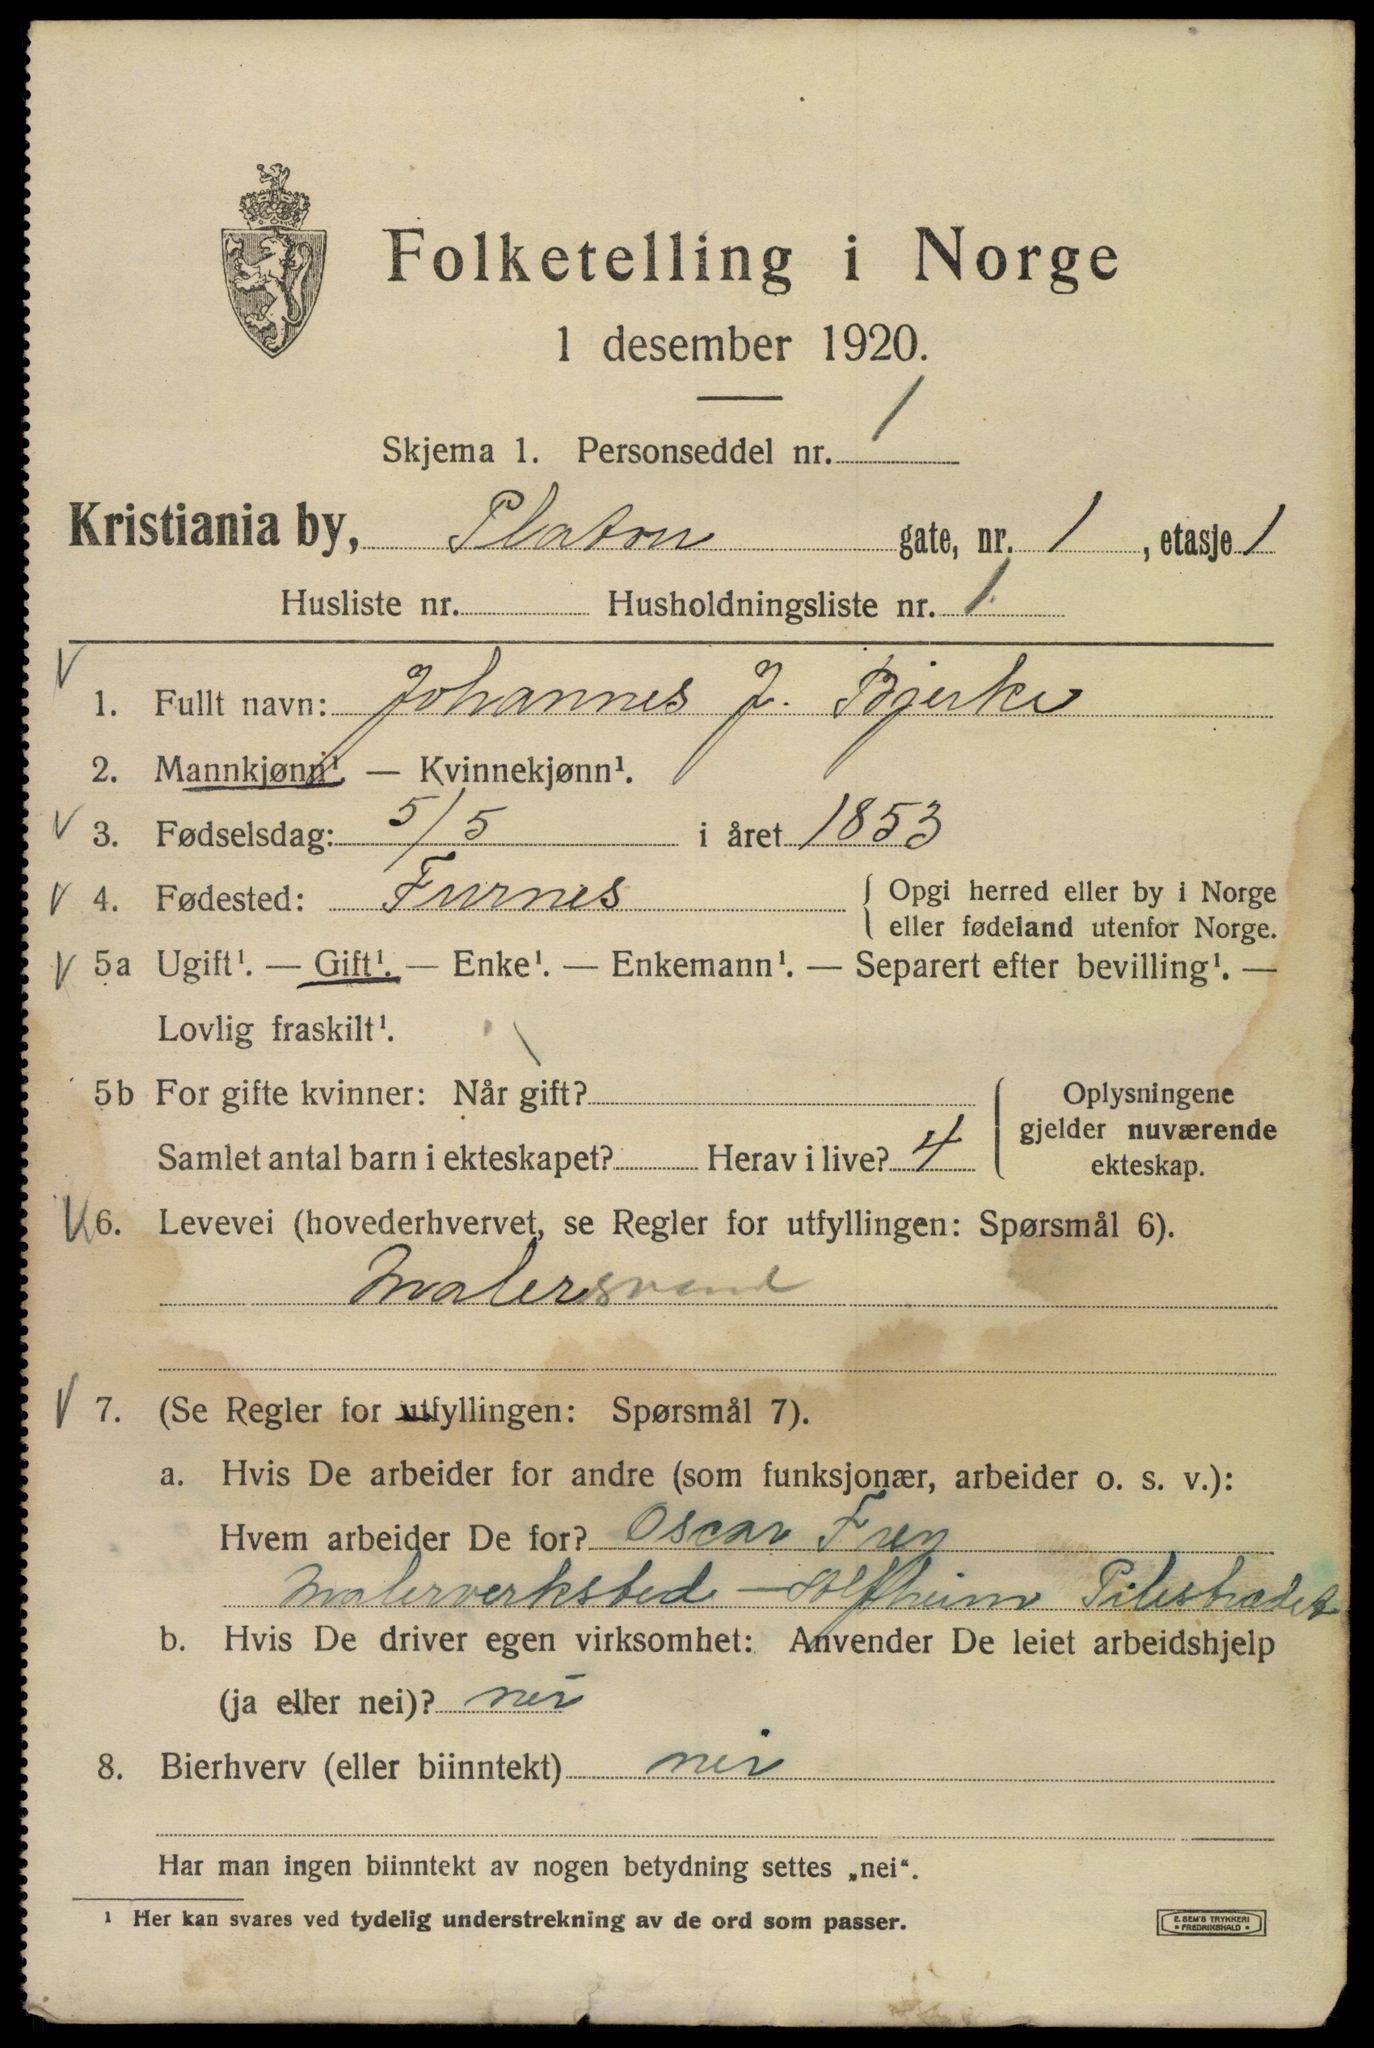 Folketelling i Norge
1 desember 1920.
Skjema 1. Personseddel nr. 1
Kristiania by, Platou gate, nr. 1, etasje 1
Husliste nr. Husholdningsliste nr. 1.
1. Fullt navn: Johannes J. Bjerke
2. Mannkjønn¹. — Kvinnekjønn¹.
3. Fødselsdag: 5/5 i året 1853
4. Fødested: Furnes { Opgi herred eller by i Norge
eller fødeland utenfor Norge.
5a Ugift¹. — Gift¹. — Enke¹. — Enkemann¹. — Separert efter bevilling¹. —
Lovlig fraskilt¹.
5b For gifte kvinner: Når gift? { Oplysningene
gjelder nuværende
Samlet antal barn i ekteskapet? Herav i live? 4
ekteskap.
6. Levevei (hovederhvervet, se Regler for utfyllingen: Spørsmål 6).
Malersvend
7. (Se Regler for utfyllingen: Spørsmål 7).
a. Hvis De arbeider for andre (som funksjonær, arbeider o. s. v.):
Hvem arbeider De for? Oscar Frey
Malerverksted — Pilestrædet
b. Hvis De driver egen virksomhet: Anvender De leiet arbeidshjelp
(ja eller nei)? nei
8. Bierhverv (eller biinntekt) nei
Har man ingen biinntekt av nogen betydning settes „nei“.
¹ Her kan svares ved tydelig understrekning av de ord som passer.
E. SEM'S TRYKKERI
FREDRIKSHALD